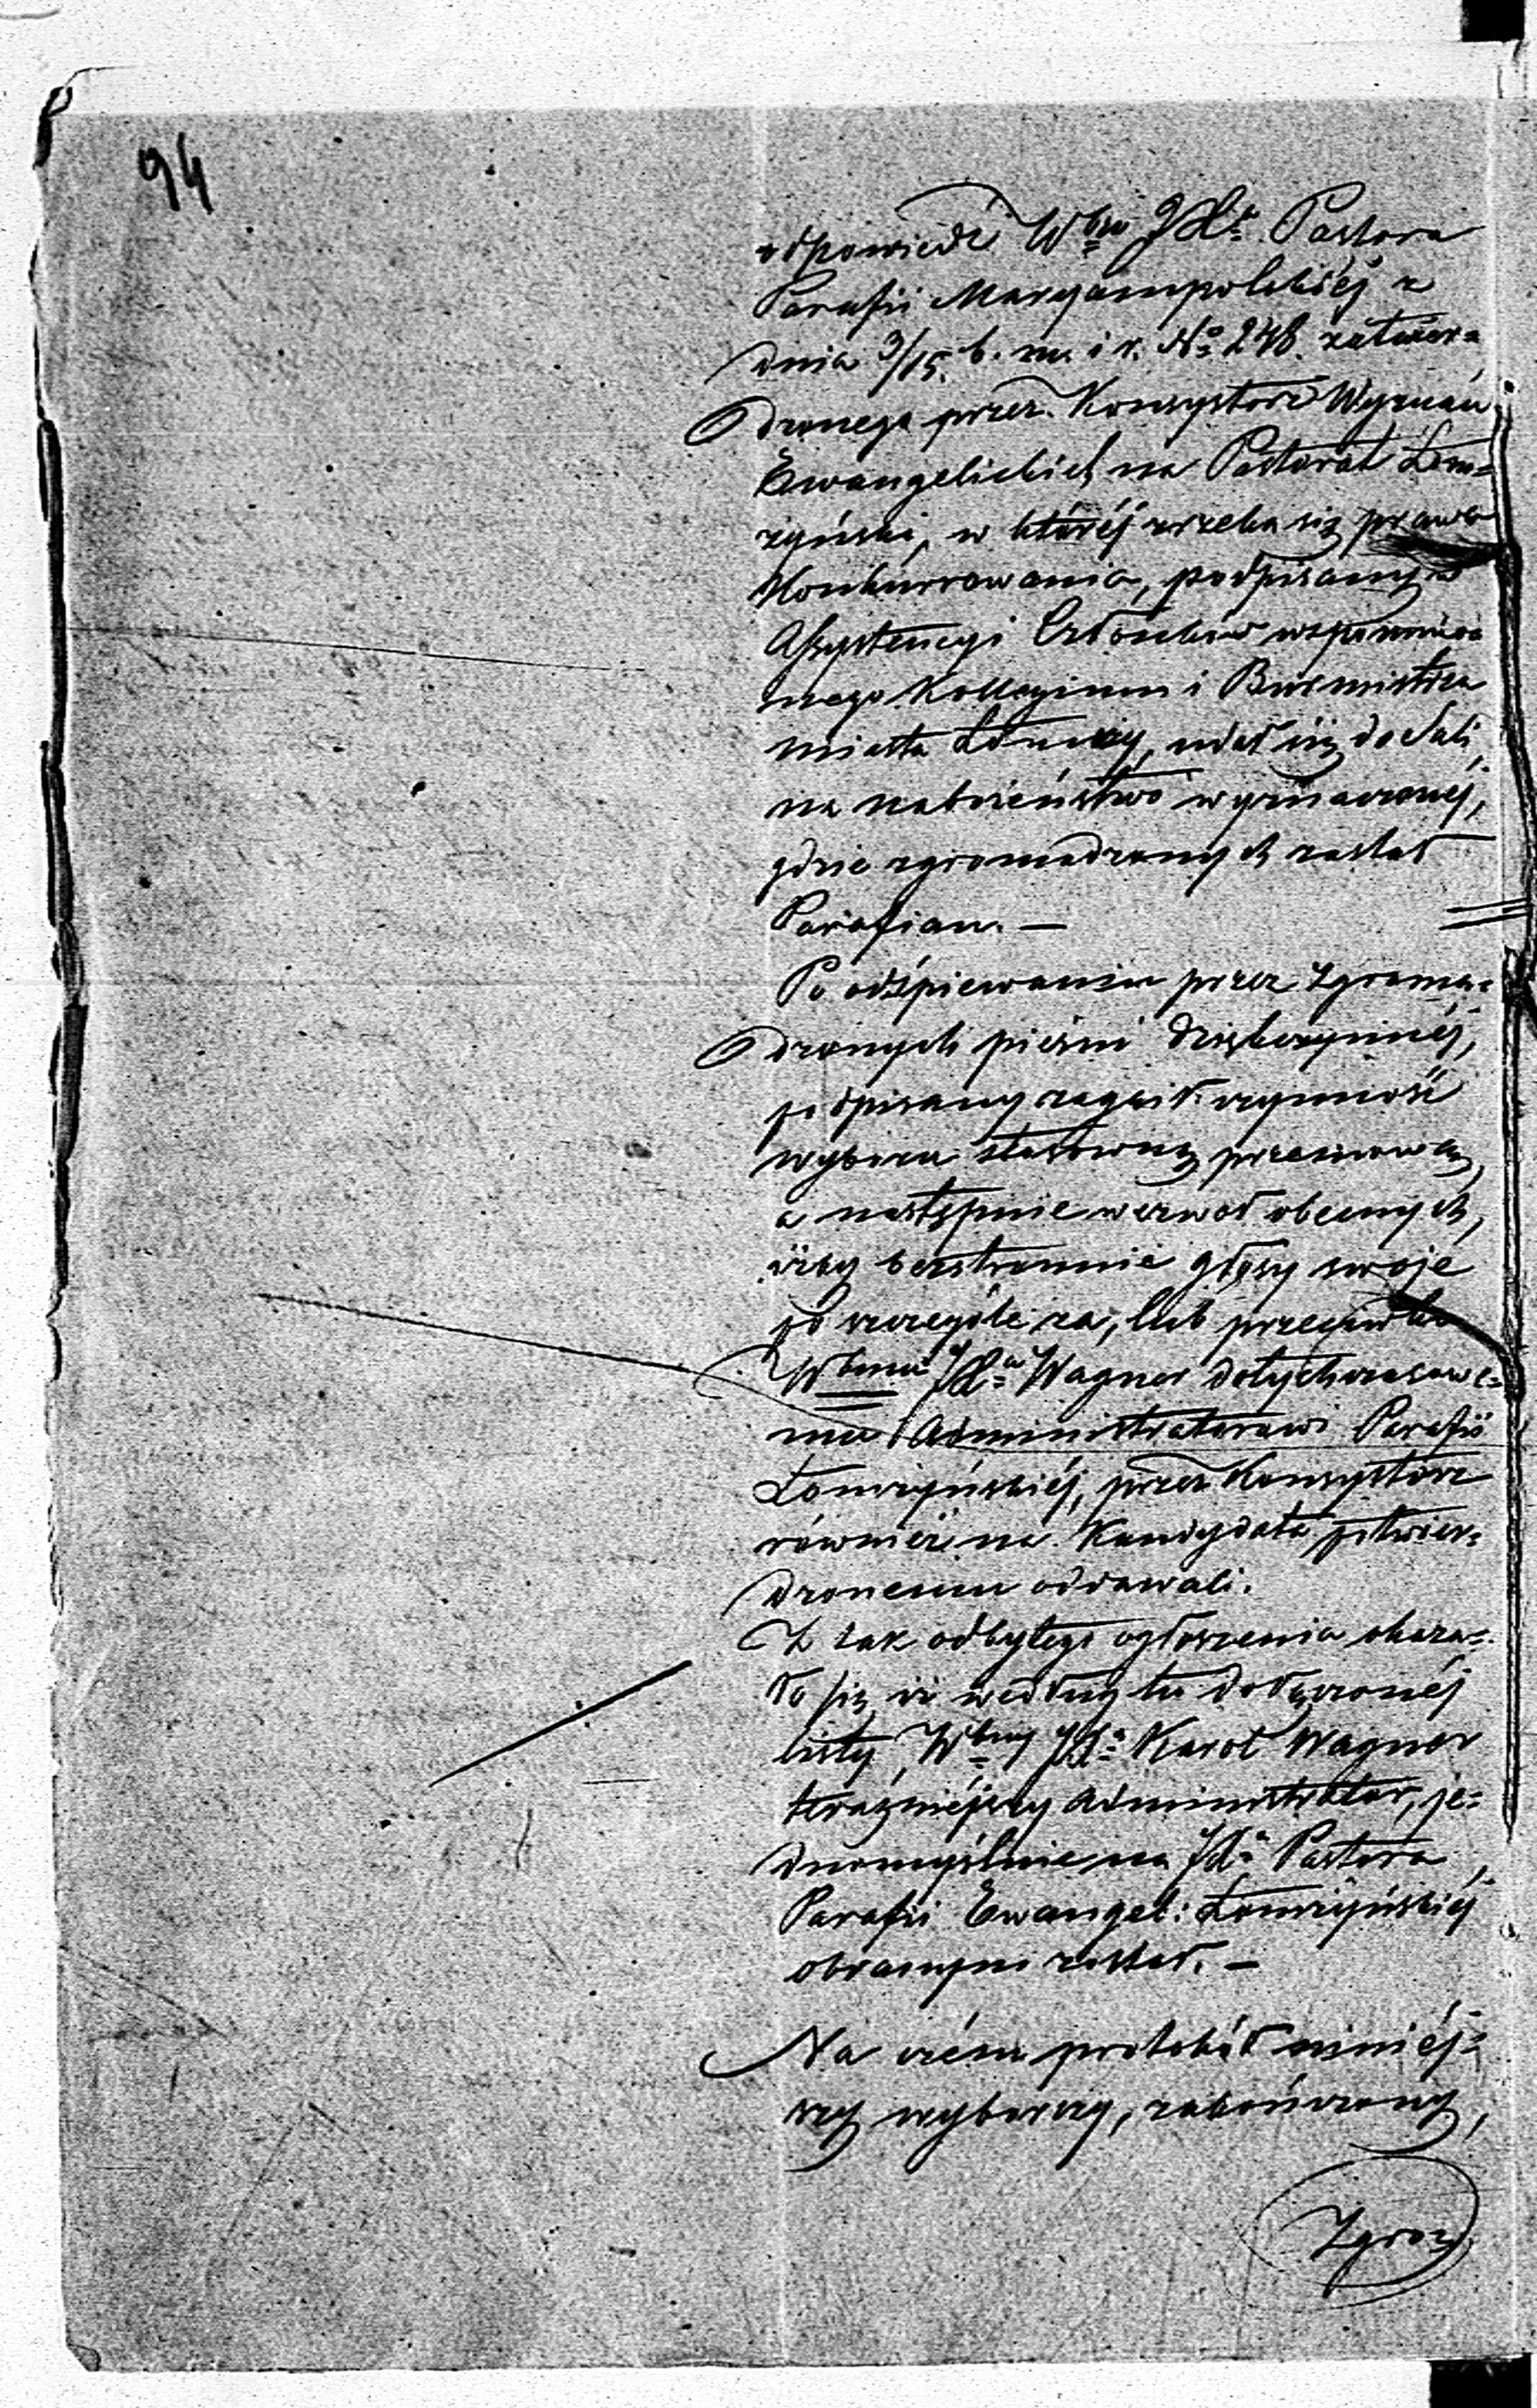 94
odpowiedź Wgo JXa. Pastora
Parafii Maryampolskiéj z
dnia 3/15. b. m. i r. No 248. zatwier=
dzonego przez Konsystorz Wyznań
Ewangelickich na Pastorat Łom=
żyński, w któréj zrzeka się prawa
Konkurrowania, podpisany w
Assystencyi Członków wspomnio=
nego Kollegium i Burmistrza
miasta Łomży, udał się do Sali
na nabożeństwo wyznaczonéj,
gdzie zgromadzonych zastał
Parafian. —
Po odśpiewaniu przez Zgroma=
dzonych pieśni dziękczynnéj,
podpisany zagaił czynność
wyboru stosowną przemową,
a następnie wezwał obecnych,
iżby bezstronnie głosy swoje
po szczególe za, lub przeciwko
Wbmu JXa Wagner dotychczasowe=
mu Administratorowi Parafii
Łomżyńskiéj, przez Konsystorz
również na Kandydata potwier=
dzonemu oddawali.
Z tak odbytego ogłoszenia okaza=
ło się iż według tu dołączonéj
listy, Wbny JXa Karol Wagner
teraźniéjszy Administrator, je=
dnomyślnie na JXa Pastora
Parafii Ewangel: Łomżyńskiéj
obranym został. —
Na czém protokół niniéj=
szy wyborczy, zakończony,
Zgro=